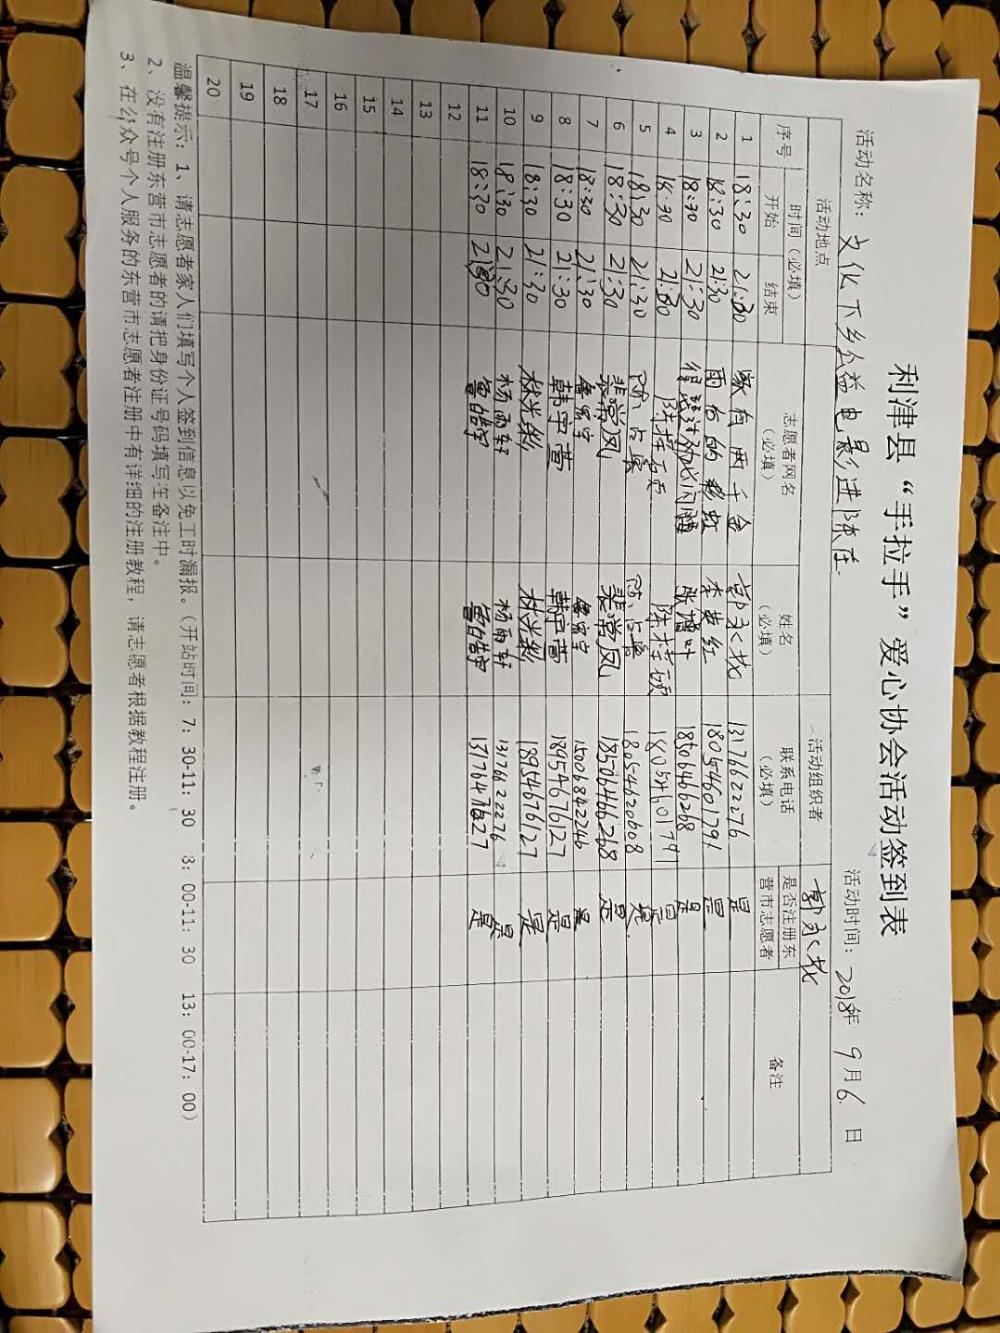 利津县“手拉手”爱心协会活动签到表
活动名称：文化下乡公益电影进陈庄 活动时间：2018年 9月6 日
活动地点 活动组织者
序号 时间（必填） 志愿者网名（必填） 姓名（必填） 联系电话（必填） 是否注册东营市志愿者 备注
开始 结束
1 18:30 21:30 家有两千金 13176622276 是
2 18:30 21:30 雨后的彩虹 李英红 18054601791 是
3 18:30 21:30 张增叶 18506466268 是
4 18:30 21:30 18054601791 是
5 18:30 21:30 18054620608 是
6 18:30 21:30 裴常凤 裴常凤 18506466268 是
7 18:30 21:30 15006842246 是
8 18:30 21:30 韩宇茜 韩宇茜 18954676127 是
9 18:30 21:30 林光彩 林光彩 18954676127 是
10 18:30 21:30 杨雨轩 杨雨轩 13176622276 是
11 18:30 21:30 鲁皓宇 鲁皓宇 13176471627 是
12
13
14
15
16
17
18
19
20
温馨提示：1、请志愿者家人们填写个人签到信息以免工时漏报。（开站时间：7：30-11：30 8：00-11：30 13：00-17：00）
2、没有注册东营市志愿者的请把身份证号码填写在备注中。
3、在公众号个人服务的东营市志愿者注册中有详细的注册教程，请志愿者根据教程注册。